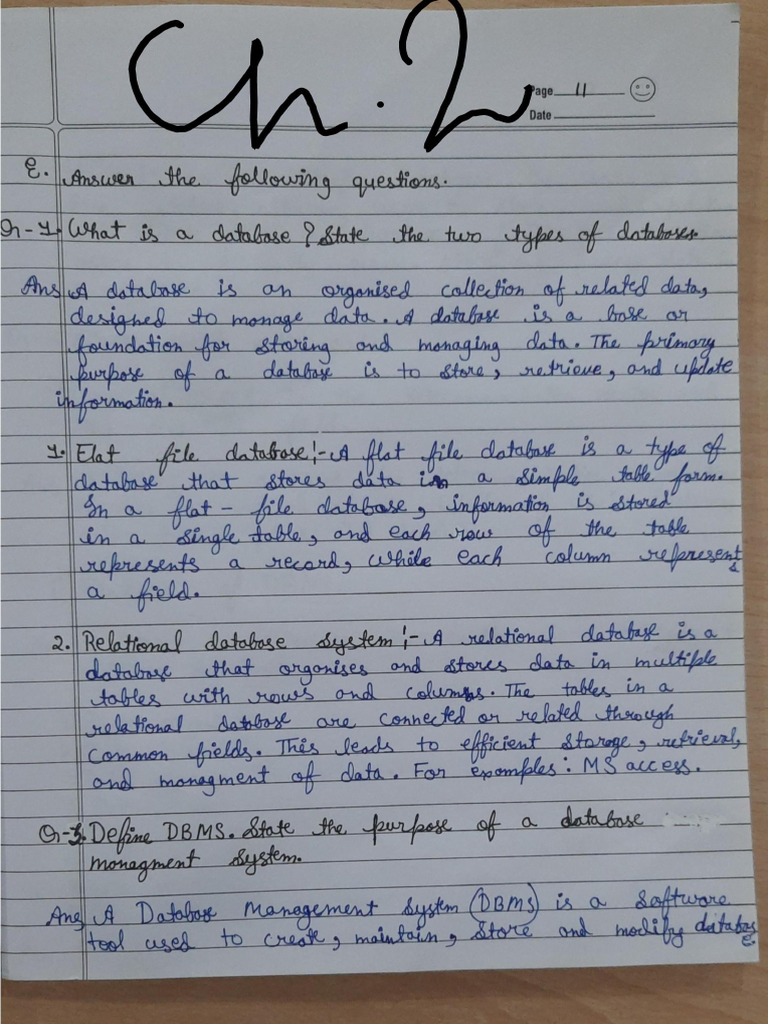 Ch. 2
Page 11
Date
E. Answer the following questions.
Q-1. What is a database? State the two types of databases.
Ans A database is an organised collection of related data,
designed to manage data. A database is a base or
foundation for storing and managing data. The primary
purpose of a database is to store, retrieve, and update
information.
1. Flat file database:- A flat file database is a type of
database that stores data in a simple table form.
In a flat - file database, information is stored
in a single table, and each row of the table
represents a record, while each column represents
a field.
2. Relational database system:- A relational database is a
database that organises and stores data in multiple
tables with rows and columns. The tables in a
relational database are connected or related through
common fields. This leads to efficient storage, retrieval,
and managment of data. For examples: MS access.
Q-3. Define DBMS. State the purpose of a database
managment system.
Ans A Database Management System (DBMS) is a software
tool used to create, maintain, store and modify database